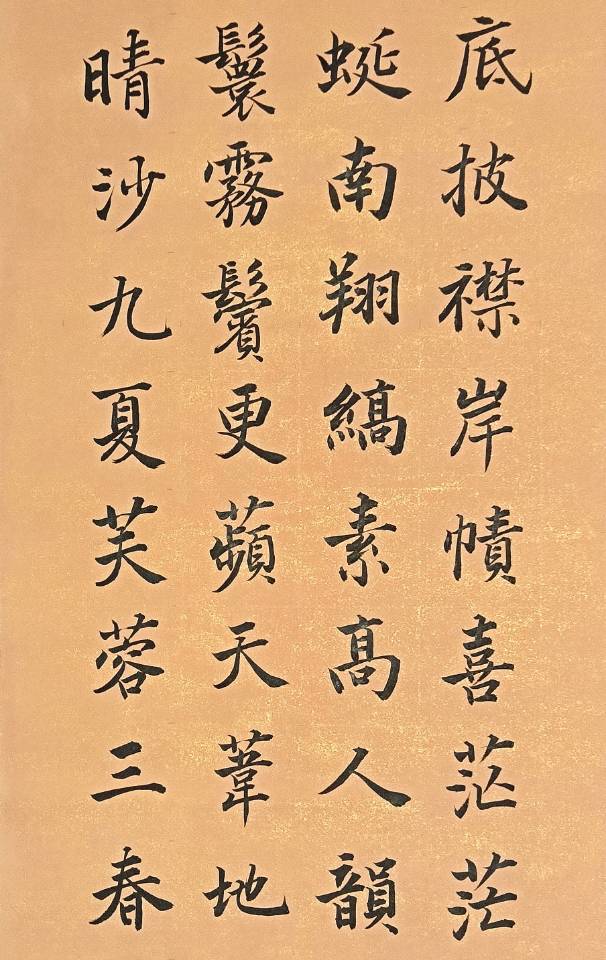 底披襟岸幘喜茫茫
蜒南翔縞素高人韻
鬟霧鬢更蘋天葦地
晴沙九夏芙蓉三春